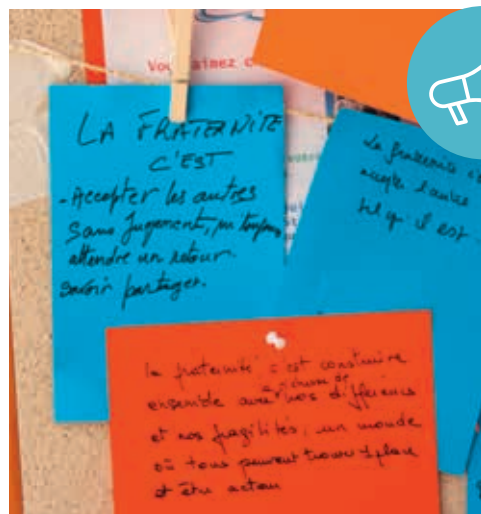 Vous aimez
LA FRATERNITE
C'EST
- Accepter les autres
sans jugement,
attendre un retour.
Savoir partager.
La fraternité c'
accepter l'autre
tel qu'il est
la fraternité c'est construire
ensemble avec nos différences
et nos fragilités, un monde
où tous peuvent trouver 1 place
et être acteur